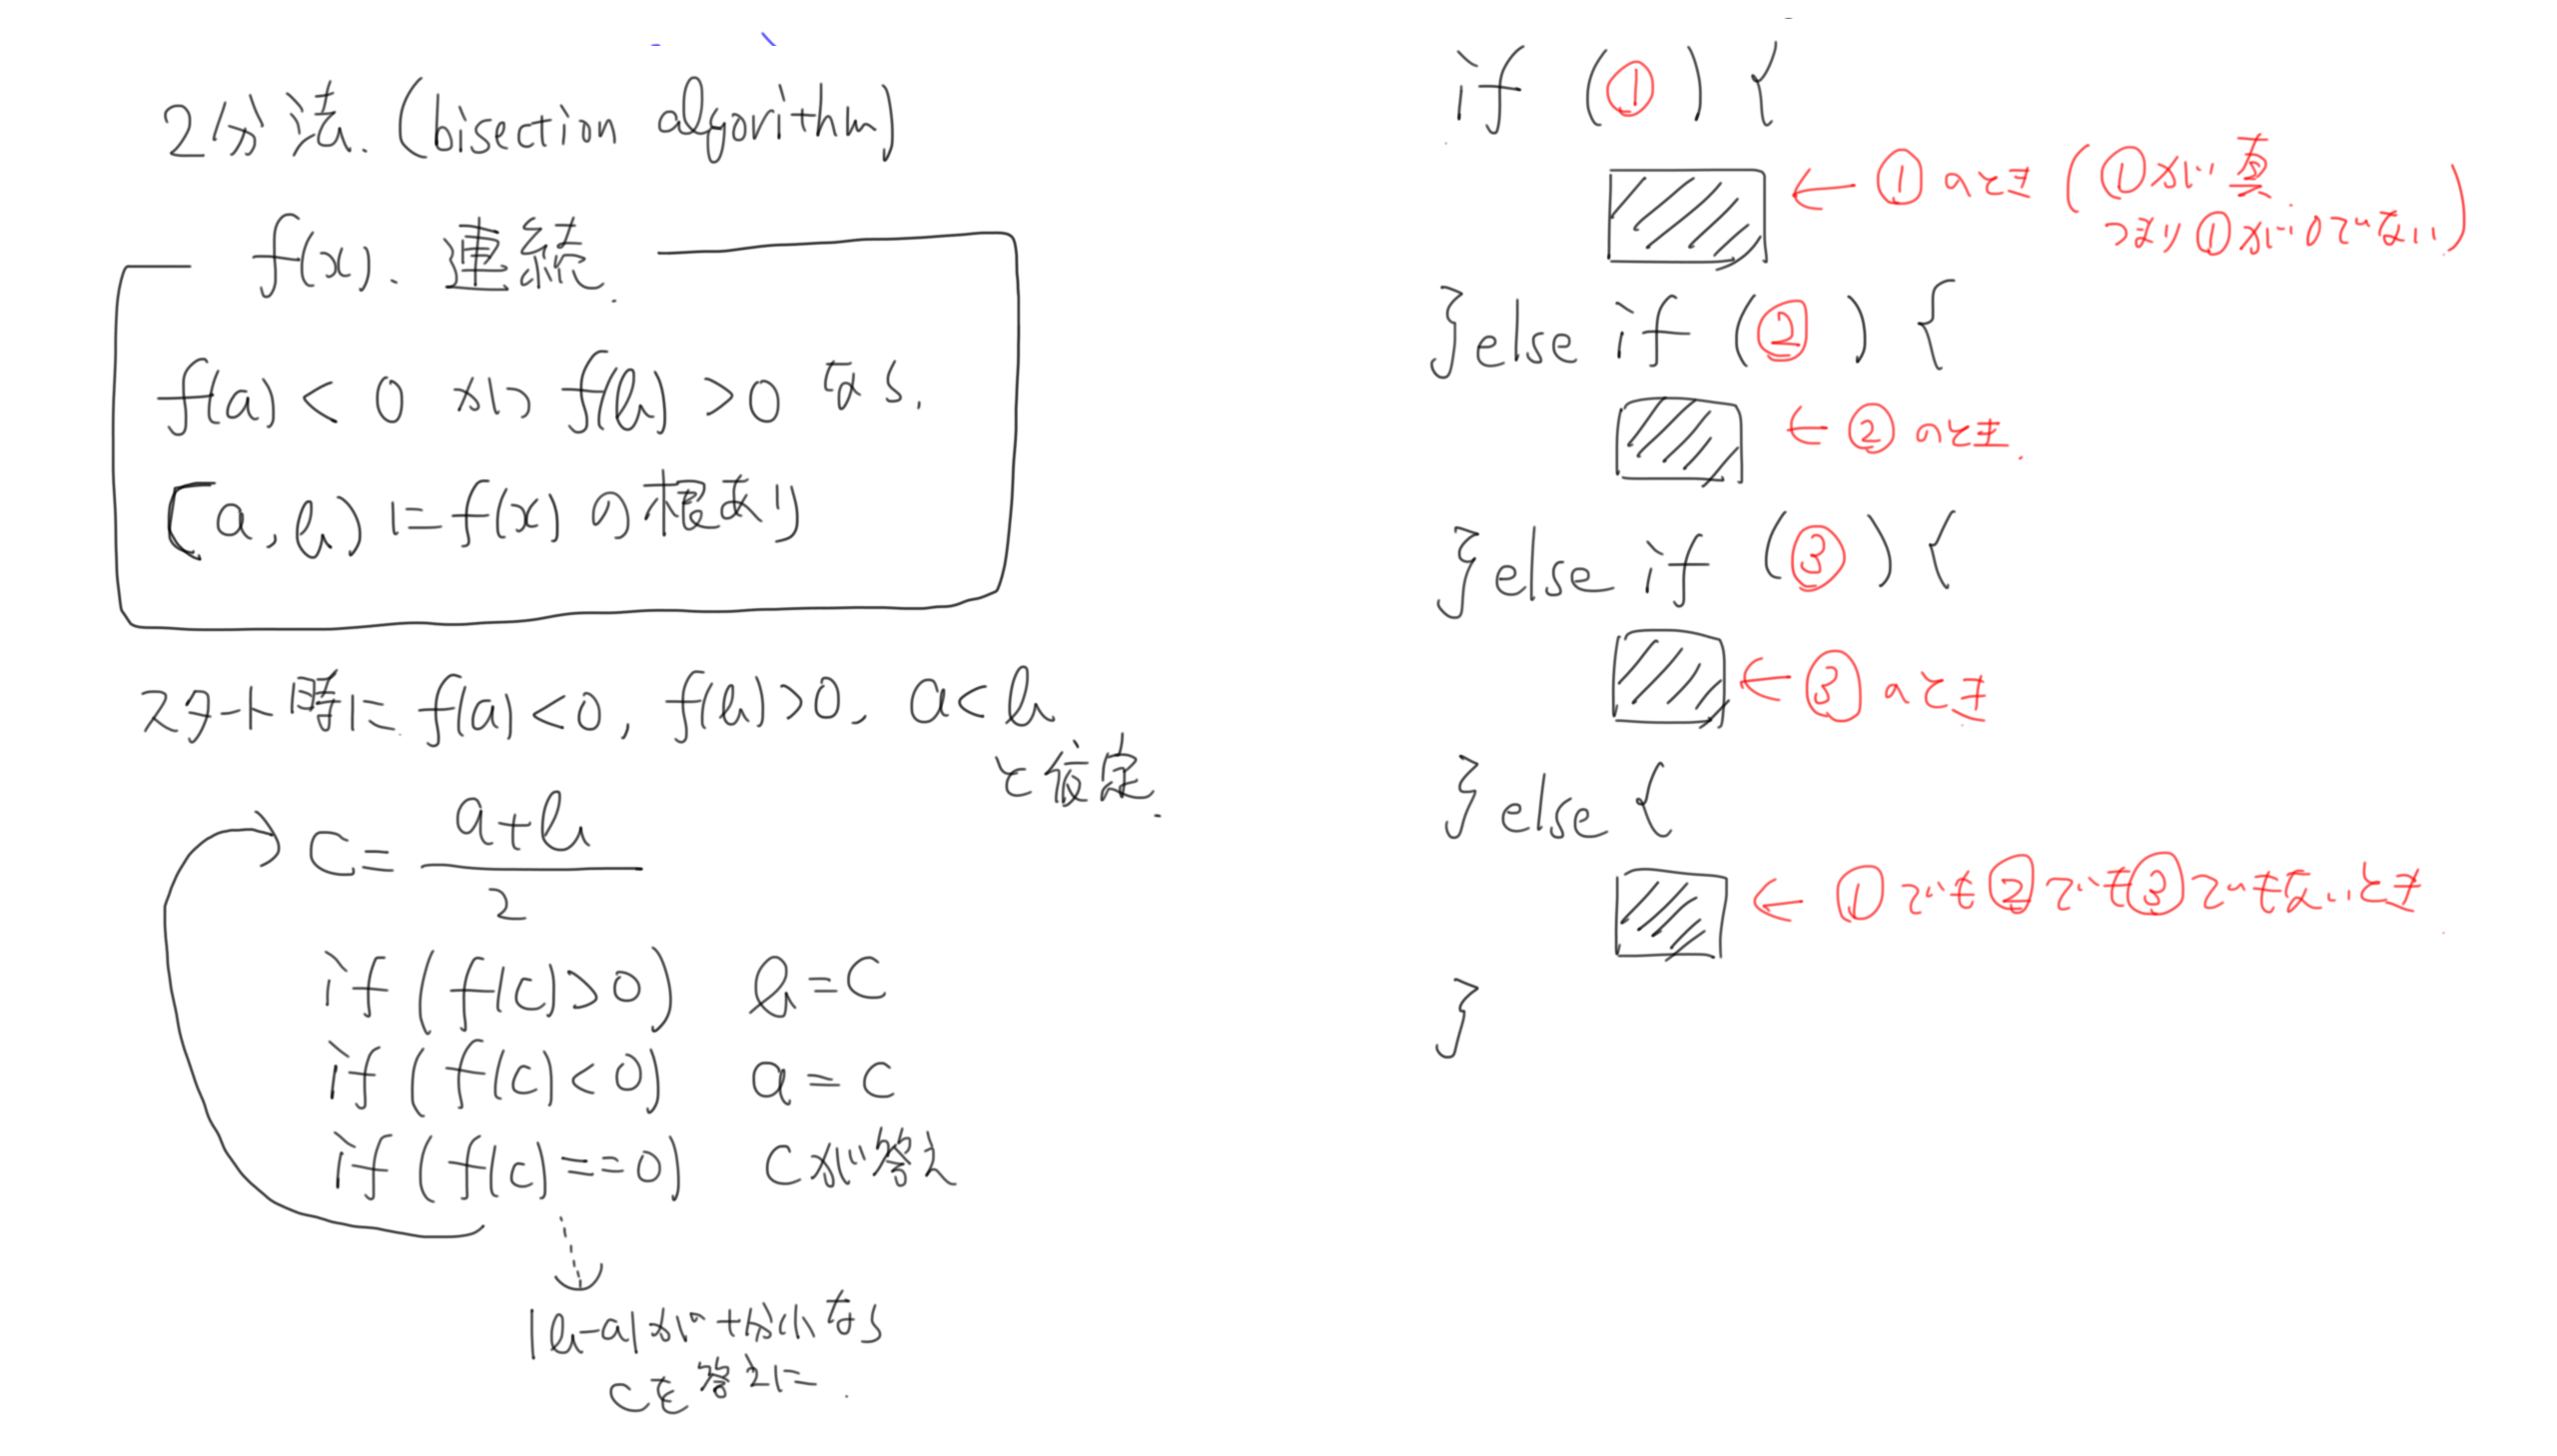 2分法. (bisection algorithm)
f(x). 連続.
f(a) < 0 かつ f(b) > 0 なら.
(a, b) に f(x) の根あり
スタート時に f(a) < 0, f(b) > 0, a < b
と仮定.
c = a+b
2
if (f(c) > 0) b = c
if (f(c) < 0) a = c
if (f(c) == 0) cが答え
|b-a| が十分小なら
cを答えに.
if (①) {
← ①のとき (①が真.
つまり①が0でない)
} else if (②) {
← ②のとき.
} else if (③) {
← ③のとき
} else {
← ①でも②でも③でもないとき
}